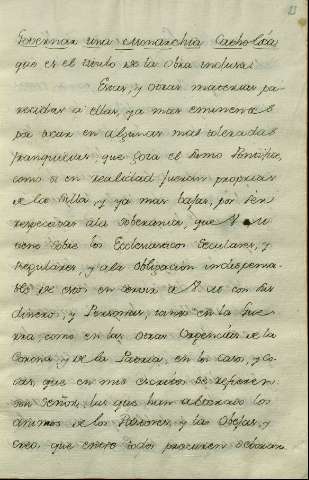 13
Governar una Monarchia Catholica,
que es el titulo de la obra inclusa.
Estas, y otras materias pa-
recidas a ellas, ya mas eminentes
por tocar en algunas mas toleradas
franquezas, que goza el Sumo Pontifice,
como si en realidad fueran proprias
de la Silla, y ya mas bajas, por ser
respectivas ala soberania, que V. M
tiene sobre los Ecclesiasticos Seculares, y
Regulares, y ala obligacion indispensa-
ble de estos en servir a V. M con su
dinero, y Personas, tanto en la Gue-
rra, como en las otras Urgencias de la
Corona, y de la Patria, en los casos, y co-
sas, que en mis escritos se refieren
son Señor, las que han alterado los
animos de los Pastores, y las Obejas, y
creo, que entre todos procuren